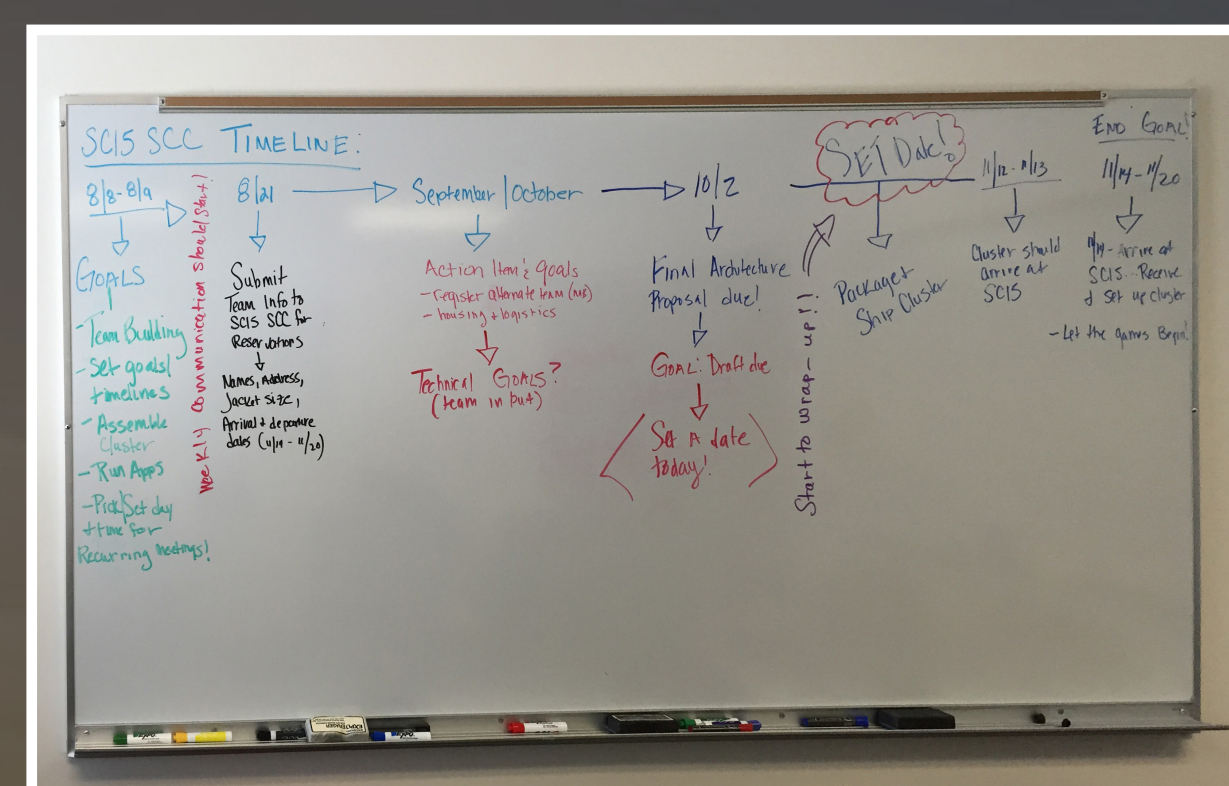 SC15 SCC TIMELINE:
8/8-8/9
GOALS
- Team Building
- Set goals/
timelines
- Assemble
Cluster
- Run Apps
- Pick/Set day
+ time for
Recurring Meetings!
Weekly communication should start!
8/21
Submit
Team Info to
SC15 SCC for
Reservations
Names, Address,
Jacket size,
Arrival + departure
dates (11/14 - 11/20)
September/October
Action Item's goals
- register alternate team
- housing + logistics
Technical GOALS?
(team input)
10/2
Final Architecture
Proposal due!
GOAL: Draft due
Set A date
today!
Start to wrap-up!!
SET Date!
Package +
Ship Cluster
11/12 - 11/13
Cluster should
arrive at
SC15
END GOAL!
11/14 - 11/20
11/14 - Arrive at
SC15... Receive
+ set up cluster
- Let the games Begin!
EXPO